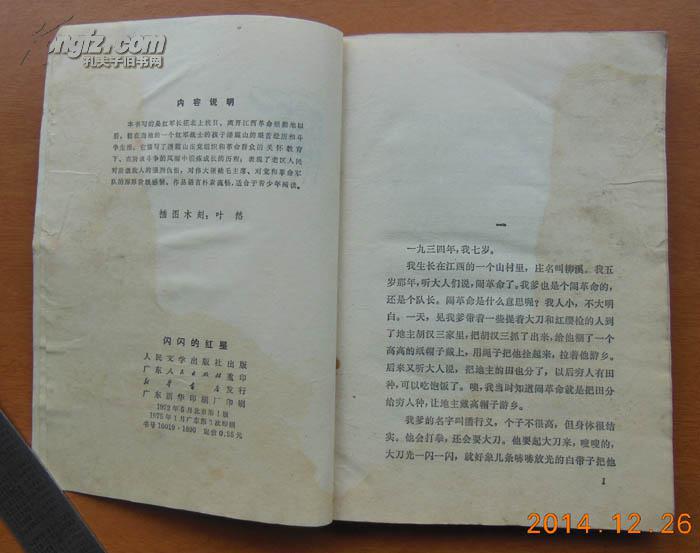 kongfz.com
孔夫子旧书网
内容说明
本书写的是红军长征北上抗日、离开江西革命根据地以
后，留在当地的一个红军战士的孩子潘震山的艰苦经历和斗
争生活。它描写了潘震山在党组织和革命群众的关怀教育
下，在阶级斗争的风雨中锻炼成长的历程；表现了老区人民
对阶级敌人的强烈仇恨，对伟大领袖毛主席、对党和革命军
队的深厚阶级感情。作品语言朴素流畅，适合于青少年阅读。
插图木刻：叶然
闪闪的红星
人民文学出版社出版
广东人民出版社重印
新华书店发行
广东新华印刷厂印刷
1972年5月北京第1版
1975年1月广东第3次印刷
书号10019·1890 定价0.35元
一
一九三四年，我七岁。
我生长在江西的一个山村里，庄名叫柳溪。我五
岁那年，听大人们说，闹革命了。我爹也是个闹革命的，
还是个队长。闹革命是什么意思呢？我人小，不大明
白。一天，见我爹带着一些提着大刀和红缨枪的人到
了地主胡汉三家里，把胡汉三抓了出来，给他糊了一个
高高的纸帽子戴上，用绳子把他拴起来，拉着他游乡。
后来又听大人说，把地主的田也分了，以后穷人有田
种，可以吃饱饭了。噢，我当时知道闹革命就是把田分
给穷人种，让地主戴高帽子游乡。
我爹的名字叫潘行义，个子不很高，但身体很结
实。他会打拳，还会耍大刀。他耍起大刀来，嗖嗖的，
大刀光一闪一闪，就好象几条哧哧放光的白带子把他
1
2014.12.26